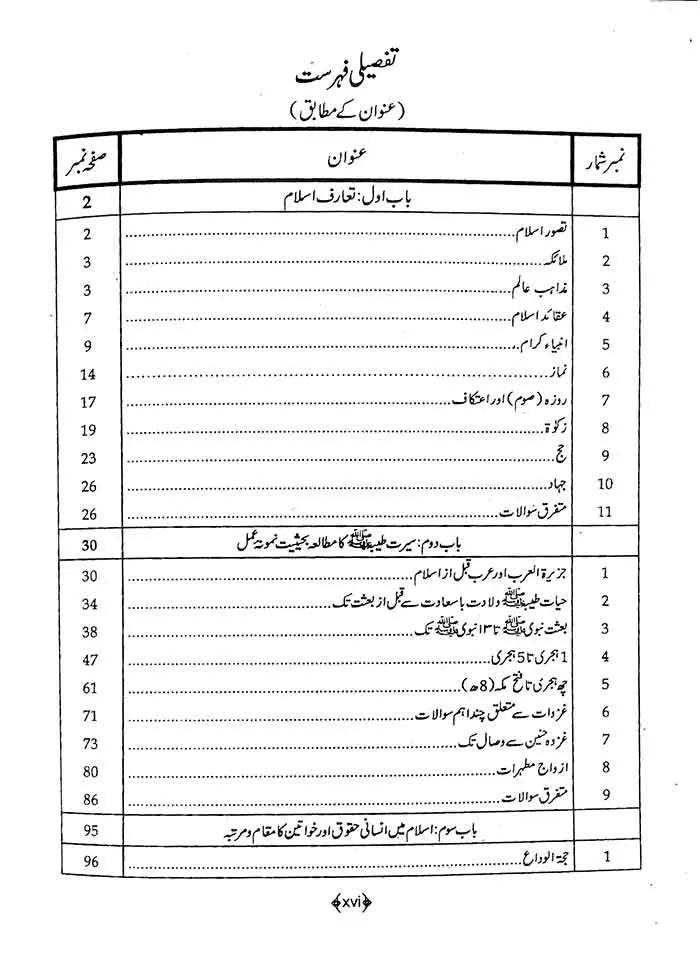 تفصیلی فہرست
(عنوان کے مطابق)
نمبر شمار عنوان صفحہ نمبر
باب اول: تعارف اسلام 2
1 تصور اسلام 2
2 ملائکہ 3
3 مذاہب عالم 3
4 عقائد اسلام 7
5 انبیاء کرام 9
6 نماز 14
7 روزہ (صوم) اور اعتکاف 17
8 زکوٰۃ 19
9 حج 23
10 جہاد 26
11 متفرق سوالات 26
باب دوم: سیرت طیبہ ﷺ کا مطالعہ بحیثیت نمونہ عمل 30
1 جزیرۃ العرب اور عرب قبل از اسلام 30
2 حیات طیبہ ﷺ ولادت باسعادت سے قبل از بعثت تک 34
3 بعثت نبوی ﷺ تا ۱۳ نبوی ﷺ تک 38
4 1 ہجری تا 5 ہجری 47
5 چھ ہجری تا فتح مکہ (8ھ) 61
6 غزوات سے متعلق چند اہم سوالات 71
7 غزوہ حنین سے وصال تک 73
8 ازواج مطہرات 80
9 متفرق سوالات 86
باب سوم: اسلام میں انسانی حقوق اور خواتین کا مقام و مرتبہ 95
1 حجۃ الوداع 96
xvi